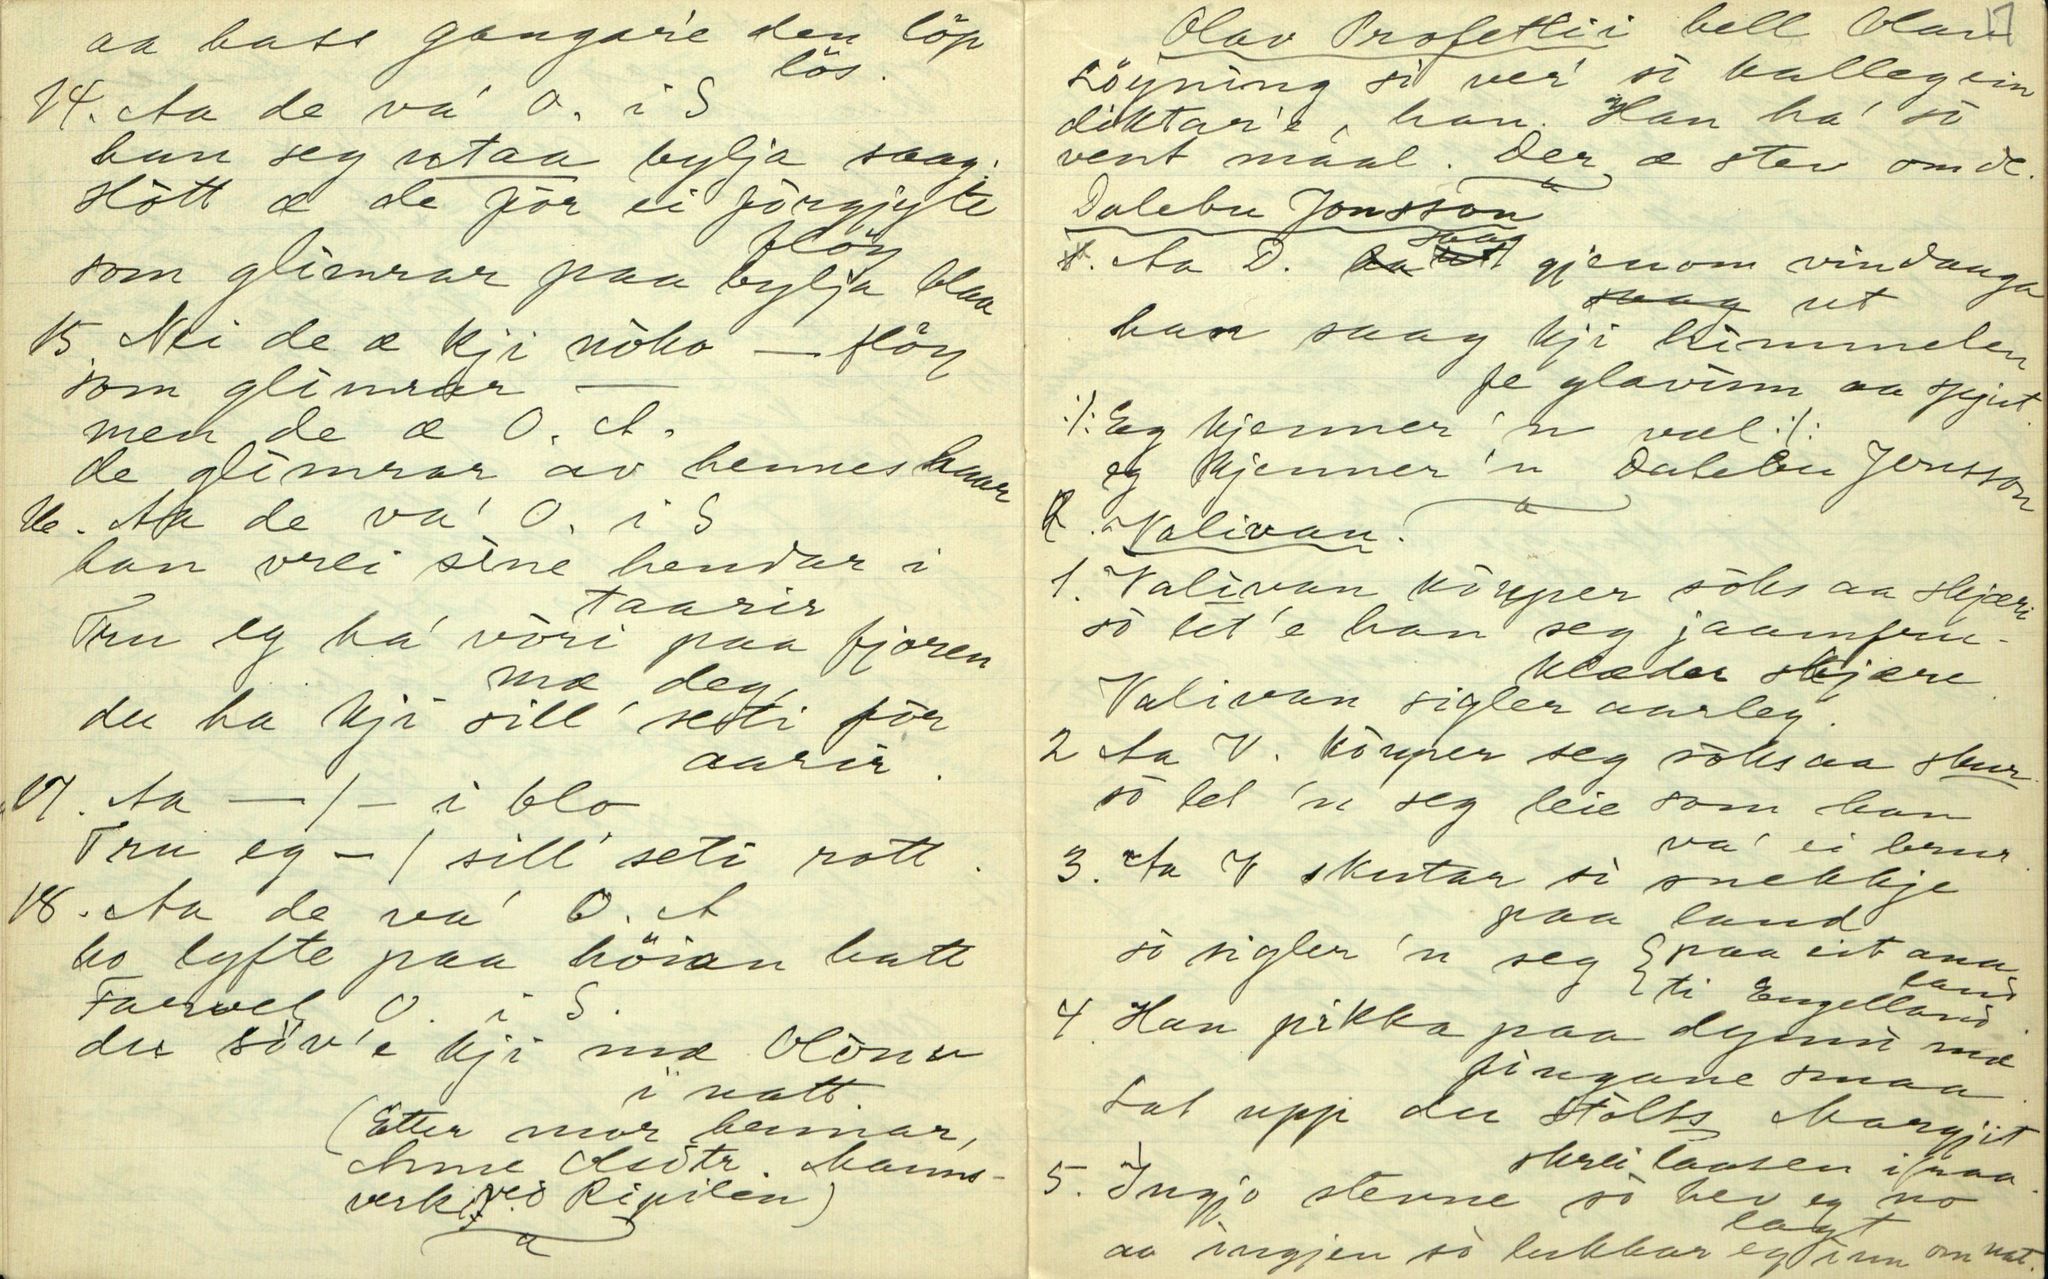 aa hass gangar'e den löp
lös.
14. Aa de va' O. i S
han seg utaa bylja saag.
Hött æ de för ei förgjyte
flöy
som glimrar paa bylja blaa
15. Nei de æ kji nòko — flöy
som glimrar —
men de æ O. A.
de glimrar av hennes haar
16. Aa de va' O. i S
han vrei sine hendar i
taarir
Tru eg ha' vòri paa fjoren
mæ deg
du ha kji sill' seti för
aarir.
17. Aa — / — i blo
Tru eg — / sill' seti rott.
18. Aa de va' O. A
ho lyfte paa höian hatt
Farvel O. i S.
du söv'e kji mæ Olönu
i natt
(Etter mor hennar,
Anne Olsdtr. Manns-
verk, ved Ripilin)
17
Olav Profetti i hell Olav
Löyning si ver' sò kalleg ein
diktar'e, han. Han ha' sò
vent maal. Der æ stev om de.
Dalebu Jonsson
1. Aa D. saag gjenom vindauga
ut
han saag kji himmelen
fe glavinn aa spjut.
:/: Eg kjenner 'n væl :/:
eg kjenner 'n Dalebu Jonsson
Valivan.
1. Valivan köyper söks aa skjæri
sò let'e han seg jaamfru-
klæder skjære
Valivan sigler aarleg.
2 Aa V. köyper seg söks aa skur.
sò let 'n seg leie som han
va' ei brur.
3. Aa V skutar si snekkje
paa land
sò sigler 'n seg { paa eit ana
land
{ ti Engelland.
4. Han pikka paa dynni mæ
fingane smaa
Lat upp du stolts Margjit
skrei laasen ifraa.
5. Ingjo stevne sò hev eg no
lagt
aa ingjen sò lukkar eg inn om nat.